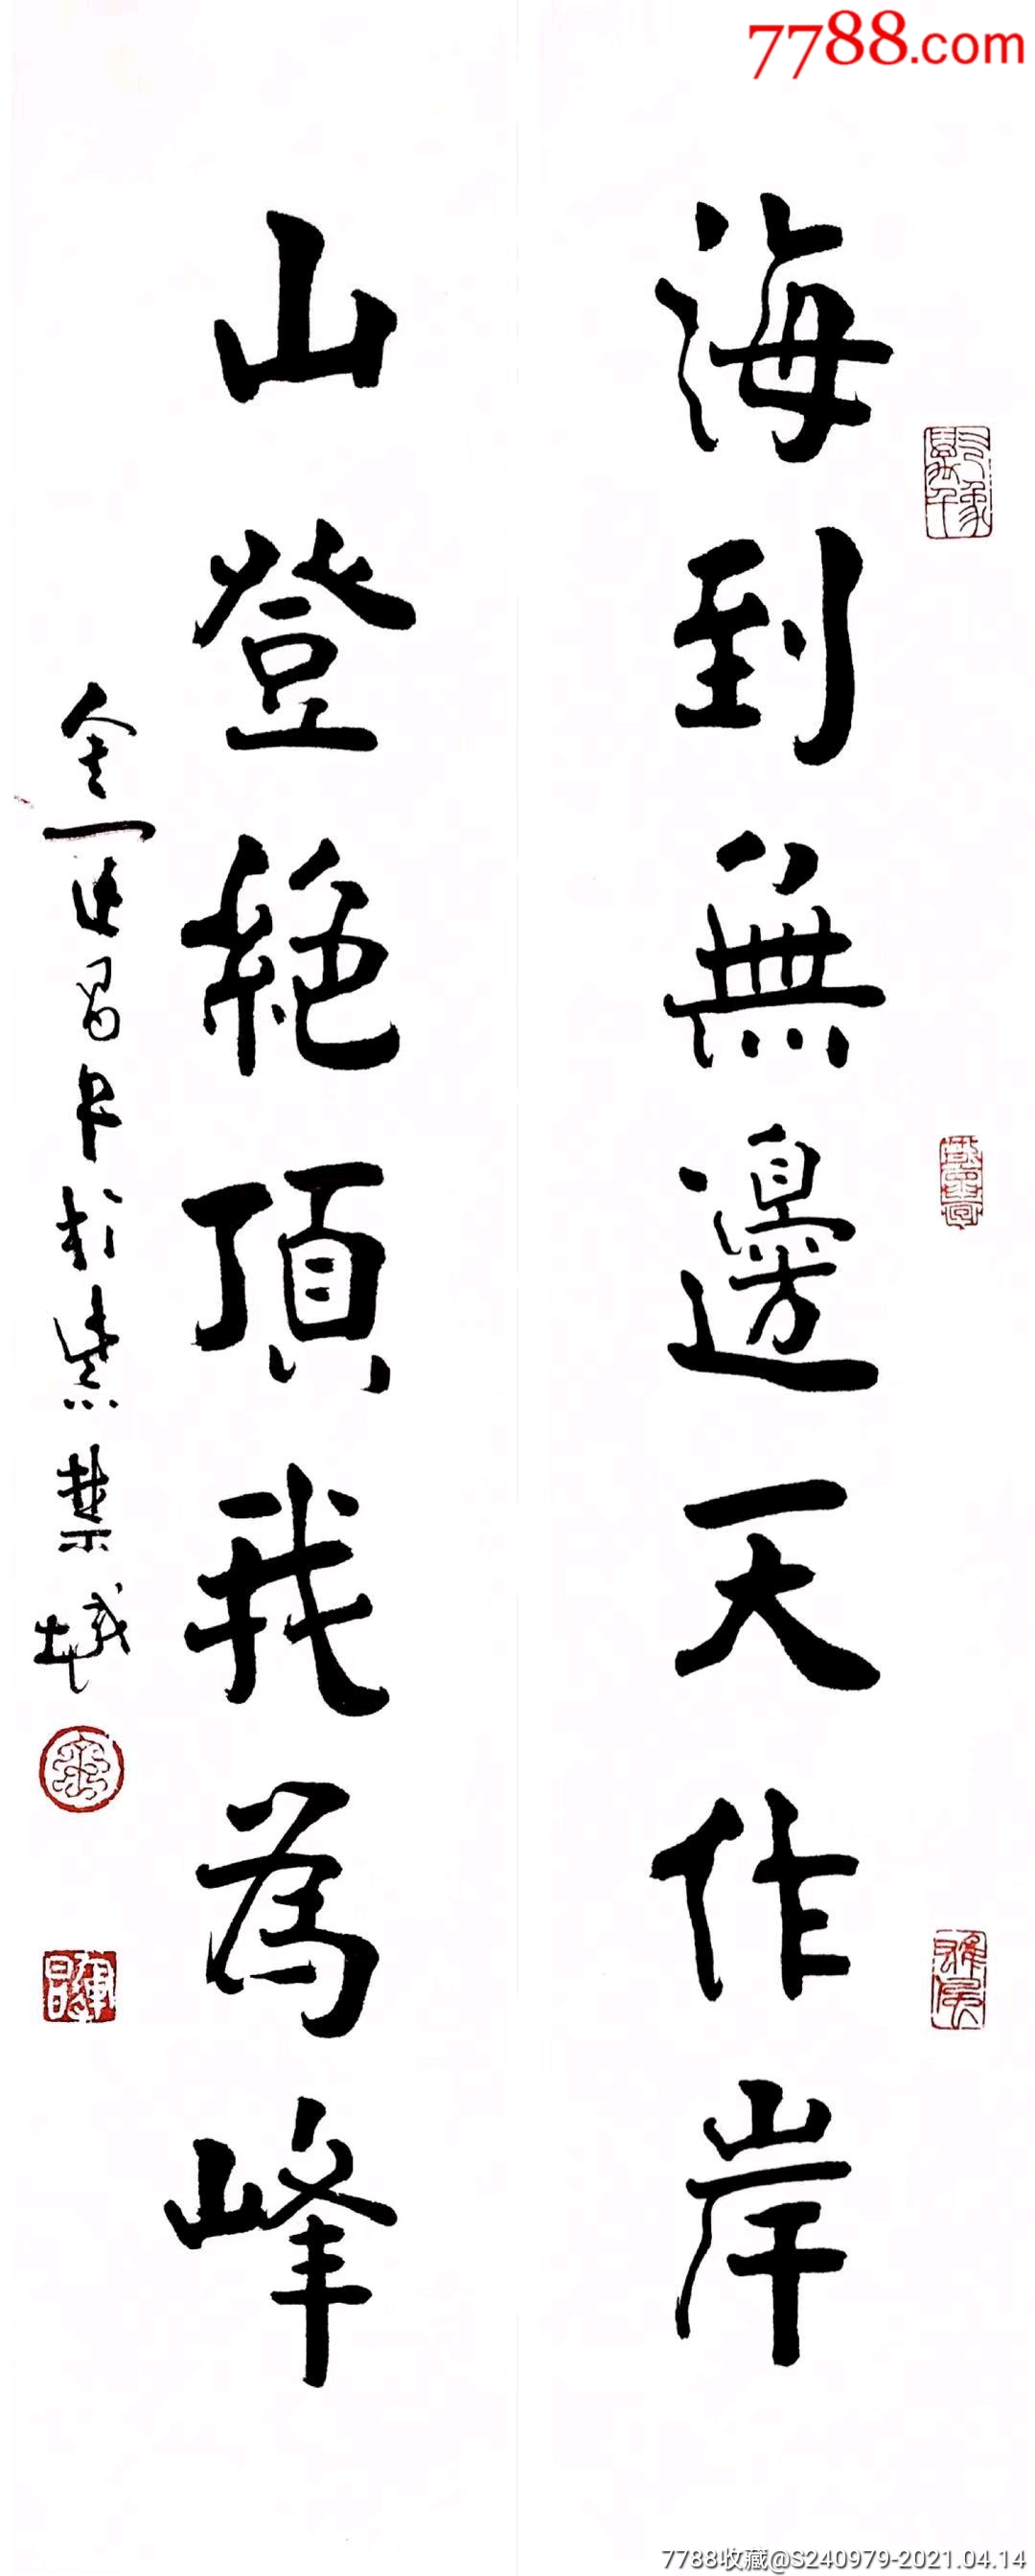 7788.com
海到無邊天作岸
山登絕頂我為峰
於紫禁城
7788收藏@S240979-2021.04.14